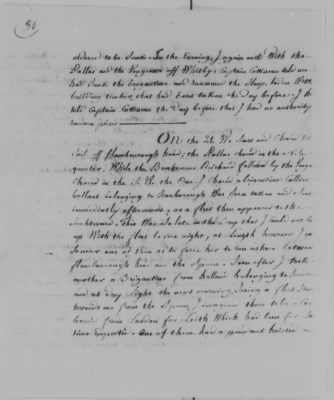 30
ordered to be Sunk. In the Evening I again met With the
Pallas and the Vengeance off Whitby. Captain Cottineau told me
had Sunk the Brigantine and ransomed the Sloop, laden With
building timber, that had been taken the day before. I
told Captain Cottineau the day before that I had no authority
ransom prizes
On the 21. We Saw and Chased
Sail off Flamborough head, the Pallas chased in the N. E.
quarter, While the Bonhomme Richard followed by the
Chased in the S. W. the One I Chased a brigantine Collier
ballast belonging to Scarborough Was Soon taken and Sunk
immediately afterwards, as a fleet then appeared to the
Southward. This Was So late in the day that I could not
up With the fleet before night, at length however I
Several one of them as to force her to run ashore between
Flamborough head and the Spurn. Soon after I took
another a Brigantine from Holland belonging to Sunderland
and at day light the next morning, Seeing a fleet
towards me from the Spurn, I imagined them to be
bound from London for Leith Which had been for
time Expected. One of them had a pendant hoisted